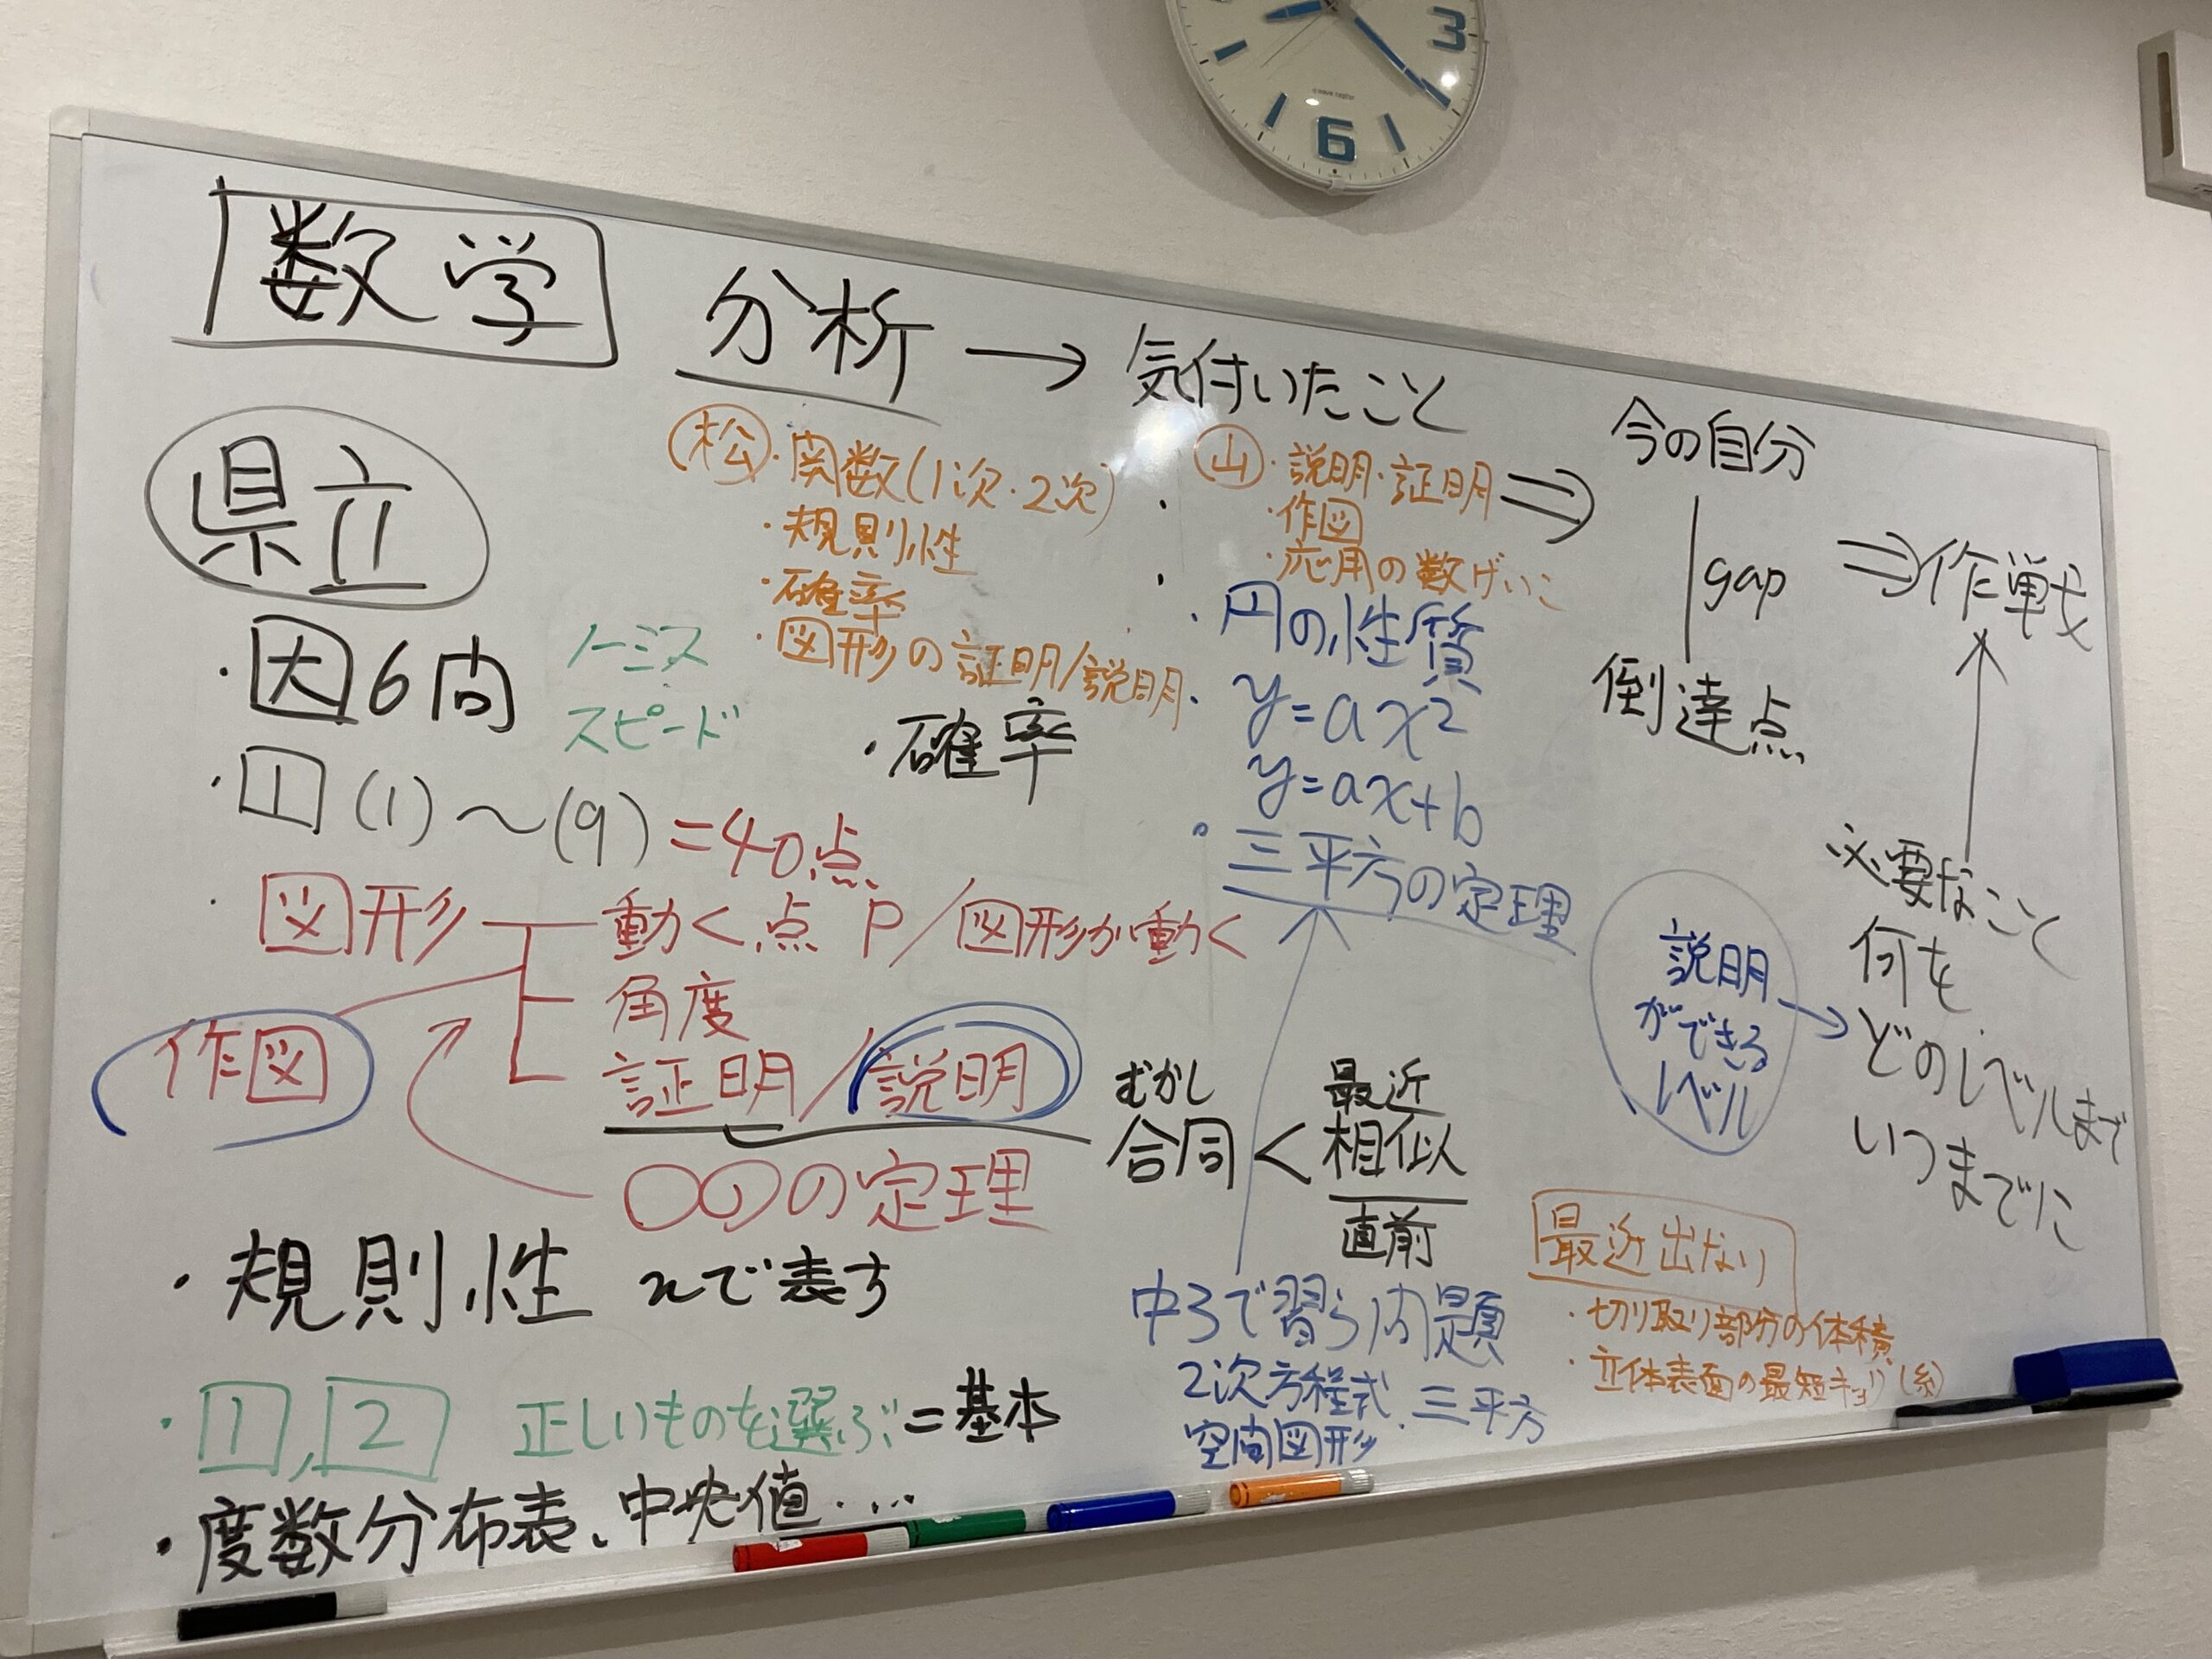 3
6
数学
分析 → 気付いたこと
県立
・因6問
ノーミス
スピード
・1 (1)〜(9) =40点
・図形
動く点P/図形が動く
角度
証明/説明
作図
〇〇の定理
・規則性 nで表す
・1,2 正しいものを選ぶ=基本
・度数分布表、中央値・・・
松・関数(1次・2次)
・規則性
・確率
・図形の証明/説明
・確率
山・説明・証明 ⇒
・作図
・応用の数
・円の性質
・y=ax²
y=ax+b
・三平方の定理
むかし 最近
合同<相似
直前
中3で習う問題
2次方程式・三平方
空間図形
今の自分
gap
到達点
⇒作戦
必要なこと
何を
どのレベルまで
いつまでに
説明
ができる
レベル →
最近出ない
・切り取り部分の体積
・立体表面の最短キョリ(糸)